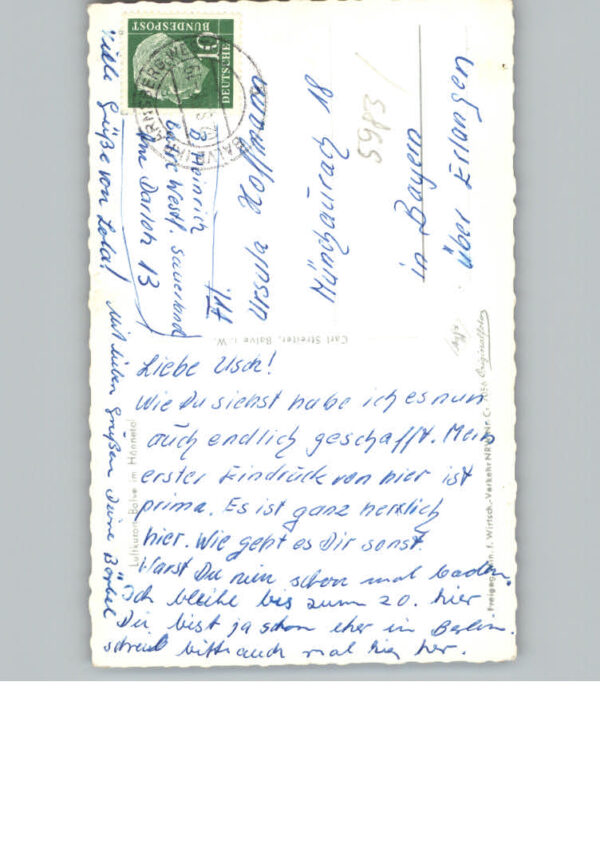 Liebe Usch!
Wie Du siehst habe ich es nun
auch endlich geschafft. Mein
erster Eindrück von hier ist
prima. Es ist ganz herrlich
hier. Wie geht es Dir sonst.
Warst Du nun schon mal baden?
Ich bleibe bis zum 20. hier
Du bist ja schon eher in Berlin.
schreib bitte auch mal hier her.
Mit lieben Grüßen Deine Bärbel
Viele Grüße von Lola!
B. Heinrich
Balve Westf. Sauerland
Am Darloh 13
Ursula Hoffmann
Münchaurach 18
5983
in Bayern
über Erlangen
DEUTSCHE
BUNDESPOST
10
BALVE
ARNSBERG
Carl Streiter, Balve i. W.
Luftkurort Balve im Hönnetal
Originalfoto